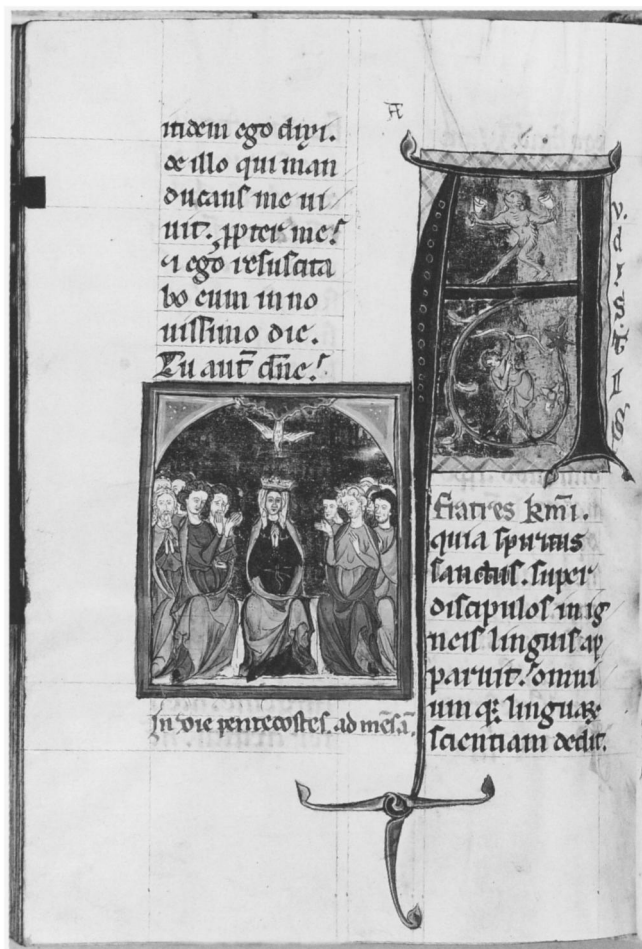 indem ego dixi.
de illo qui man
ducans me ui
uit. ꝓpter me.
⁊ ego resuscita
bo eum in no
uissimo die.
Tu aut̅ dn̅e.
In die pentecostes. ad me̅sa̅.
A
AVDISTIS
fratres km̅i.
quia spiritus
sanctus. super
discipulos in ig
neis linguis ap
paruit. omni
um qꝫ linguaꝝ
scientiam dedit.